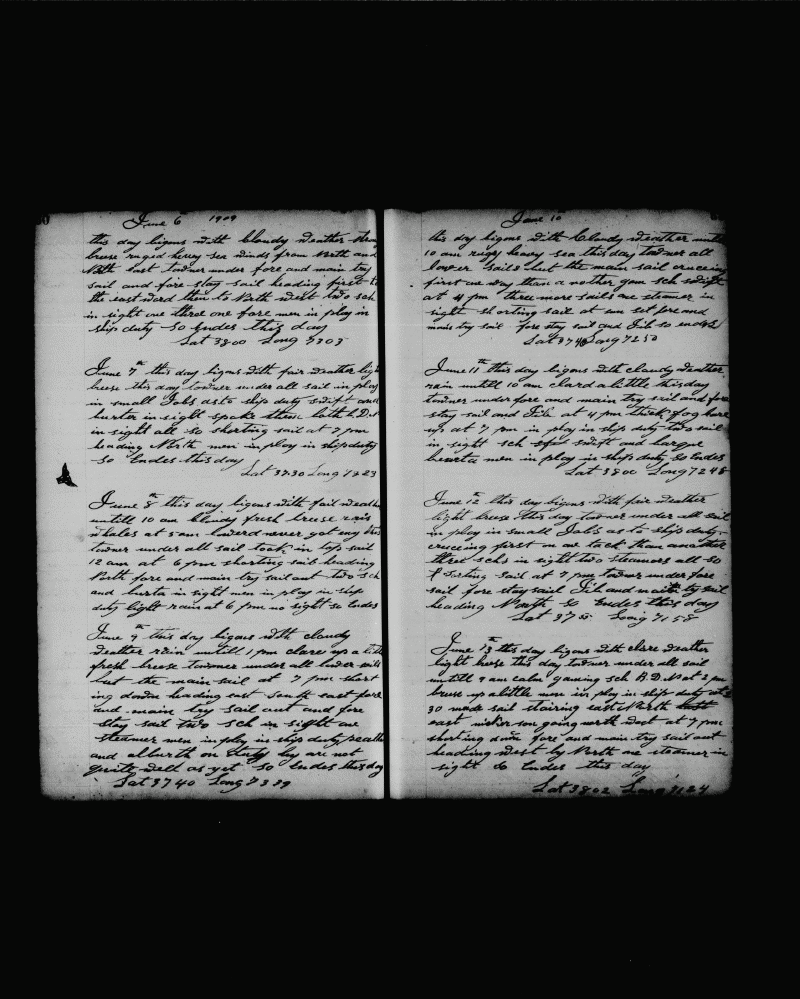 June 6 1909
this day bigins with Cloudy weather
breese ruged hevey see winds from North and
North East towner under fore and main try
sail and fore stay sail heading first to
the eastward then to North west two sch
in sight one three one fore men in ploy in
ship duty so endes this day
Lat 3800 Long 7303
June 7th this day bigins with fair weather
breese this day towner under all sail in ploy
in small Jobs as to ship duty swift and
in sight spoke them both
in sight all so shorting sail at 7 pm
heading North men in ploy in ship duty
so Endes this day
Lat 3730 Long 7223
June 8th this day bigins with fair weather
untill 10 am cloudy fresh breese rais
whales at 5 am lowerd never got any this
towner under all sail took in top sail
12 am at 6 pm shorting sail heading
North fore and main try sail out two sch
and in sight men in ploy in ship
duty light rain at 6 pm no sight so Endes
June 9th this day bigins with cloudy
weather rain untill 1 pm clare up a little
fresh breese towner under all lower sails
but the main sail at 7 pm short
ing down heading east South east fore
and main try sail out and fore
stay sail two sch in sight one
steamer men in ploy in ship duty
and are not
quite well as yet so Endes this day
Lat 3740 Long 7339
June 10
this day bigins with Cloudy weather untill
10 am rugy heavy sea this day towner all
lower sails but the main sail cruceing
first one way than a nother gam sch swift
at 4 pm three more sails one steamer in
sight shorting sail at sun set fore and
main try sail fore stay sail and Jib so endes
Lat 3740 Long 7250
June 11th this day bigins with claudy weather
rain untill 10 am clard a little this day
towner under fore and main try sail and fore
stay sail and Jib at 4 pm thick fog
up at 7 pm in ploy in ship duty two sail
in sight sch swift and barque
men in ploy in ship duty so Endes
Lat 3800 Long 7248
June 12th this day bigins with fair weather
light breese this day towner under all sail
in ploy in small Jobs as to ship duty
cruceing first on one tack than another
three schs in sight two steamers all so
sorting sail at 7 pm towner under fore
sail fore stay sail Jib and main try sail
heading North so Endes this day
Lat 3755 Long 7158
June 13th this day bigins with clare weather
light breese this day towner under all sail
untill 9 am calm gaming sch A.D.N at 2 pm
breese up alittle men in ploy in ship duty at 2
30 made sail stairing east North
east going north west at 7 pm
shorting down fore and main try sail out
heading west by North one steamer in
sight so Endes this day
Lat 3802 Long 7124